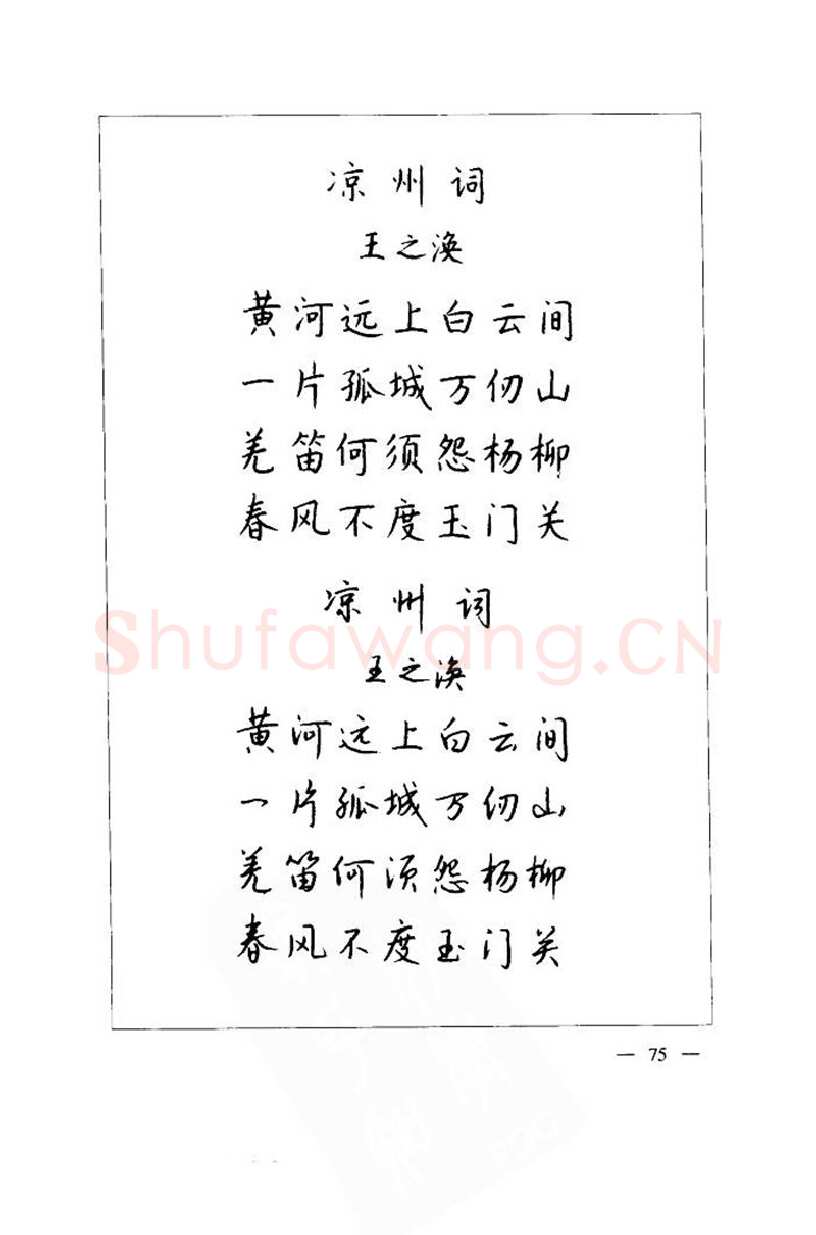 凉州词
王之涣
黄河远上白云间
一片孤城万仞山
羌笛何须怨杨柳
春风不度玉门关
凉州词
Shufawang.CN
王之涣
黄河远上白云间
一片孤城万仞山
羌笛何须怨杨柳
春风不度玉门关
— 75 —